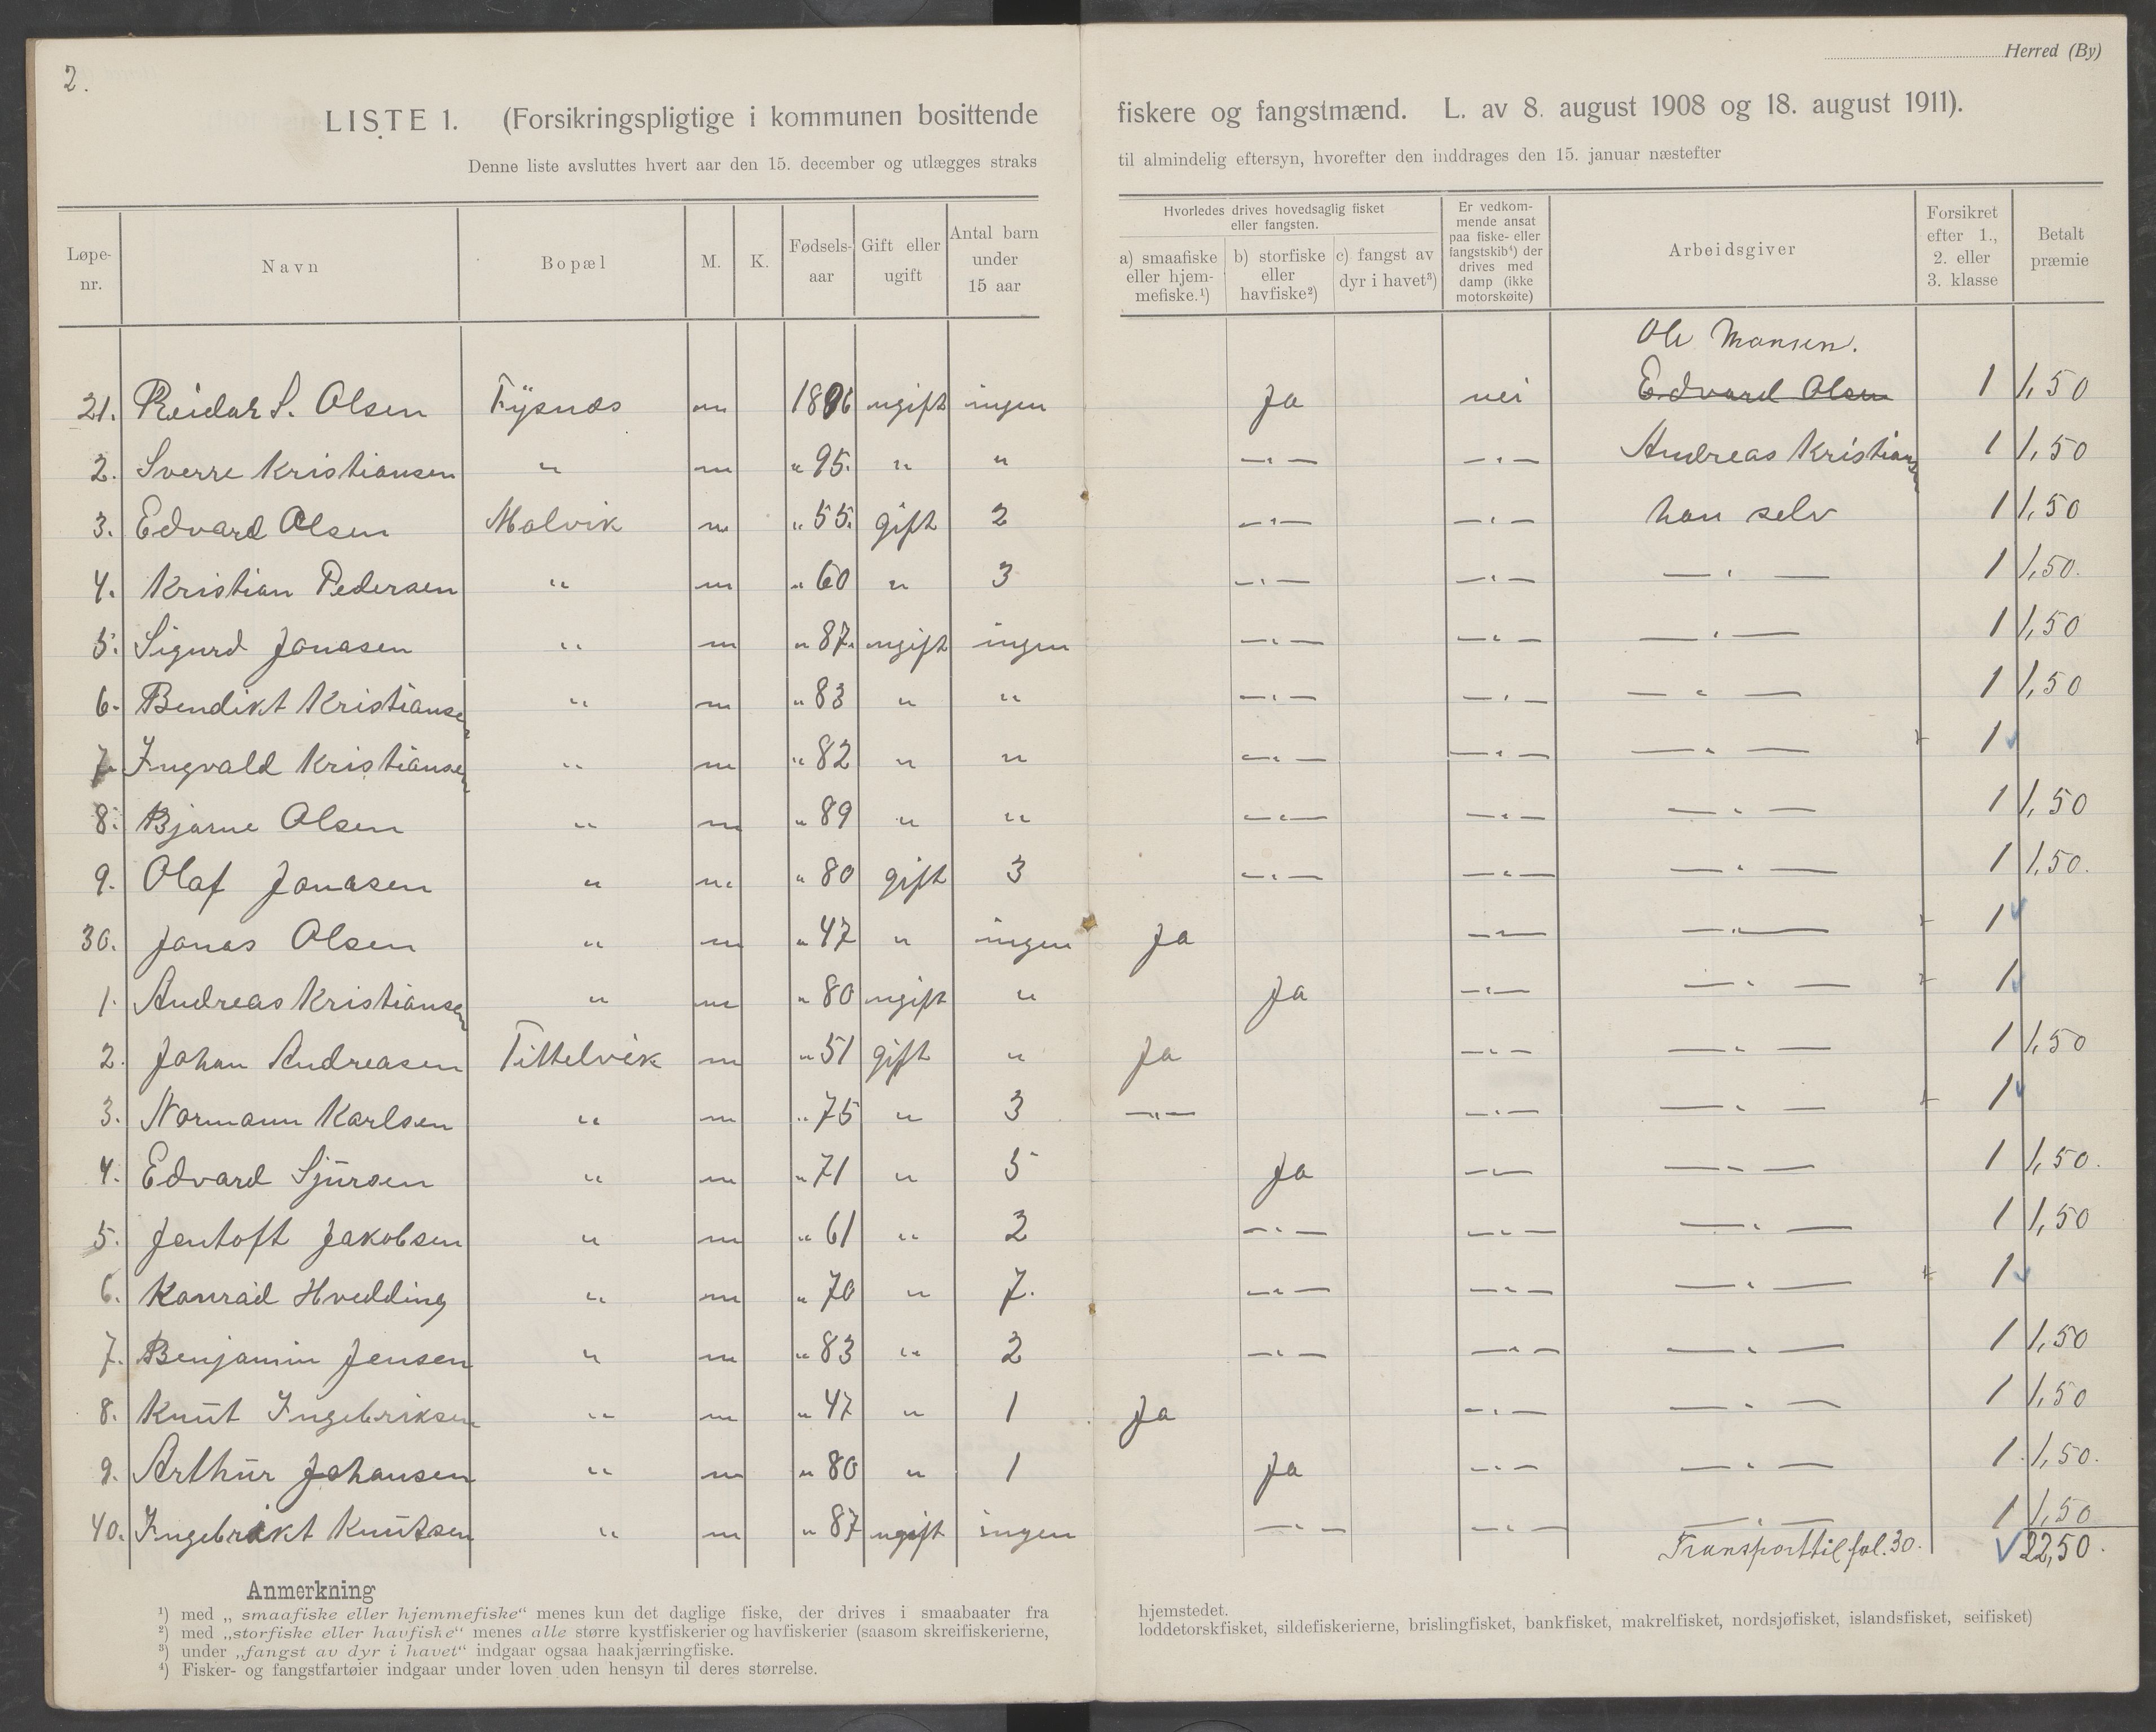 2.
Herred (By)
LISTE 1. (Forsikringspligtige i kommunen bosittende fiskere og fangstmænd. L. av 8. august 1908 og 18. august 1911).
Denne liste avsluttes hvert aar den 15. december og utlægges straks til almindelig eftersyn, hvorefter den inddrages den 15. januar næstefter
Løpe-nr. Navn Bopæl M. K. Fødsels-aar Gift eller ugift Antal barn under 15 aar Hvorledes drives hovedsaglig fisket eller fangsten. a) smaafiske eller hjem-mefiske.¹) b) storfiske eller havfiske²) c) fangst av dyr i havet³) Er vedkom-mende ansat paa fiske- eller fangstskib⁴) der drives med damp (ikke motorskøite) Arbeidsgiver Forsikret efter 1., 2. eller 3. klasse Betalt præmie
Ole Monsen.
21. Reidar S. Olsen Fysnæs m 1896 ugift ingen Ja nei Edvard Olsen 1 1,50
2. Sverre Kristiansen " m " 95. " " —"— —"— Andreas Kristiansen 1 1,50
3. Edvard Olsen Malvik m " 55. gift 2 —"— —"— han selv 1 1,50
4. Kristian Pedersen " m " 60 " 3 —"— —"— —"— 1 1,50.
5. Sigurd Jonasen " m " 87. ugift ingen —"— —"— —"— 1 1,50
6. Bendikt Kristiansen " m " 83 " " —"— —"— —"— 1 1,50
7. Ingvald Kristiansen " m " 82 " " —"— —"— —"— 1 ✓
8. Bjarne Olsen " m " 89 " " —"— —"— —"— 1 1,50
9. Olaf Jonasen " m " 80 gift 3 —"— —"— —"— 1 1,50.
30. Jonas Olsen " m " 47 " ingen Ja —"— —"— 1 ✓
1. Andreas Kristiansen " m " 80 ugift " Ja —"— —"— 1 ✓
2. Johan Andreasen Tittelvik m " 51 gift " Ja —"— —"— 1 1,50
3. Normann Karlsen " m " 75 " 3 —"— —"— —"— 1 ✓
4. Edvard Sjursen " m " 71 " 5 Ja —"— —"— 1 1,50.
5. Jentoft Jakobsen " m " 61 " 2 —"— —"— —"— 1 1,50
6. Konrad Hvedding " m " 70 " 7. —"— —"— —"— 1 ✓
7. Benjamin Jensen " m " 83 " 2 —"— —"— —"— 1 1,50
8. Knut Ingebriksen " m " 47 " 1 Ja —"— —"— 1 1,50
9. Arthur Johansen " m " 80 " 1 Ja —"— —"— 1 1,50.
40. Ingebrikt Knutsen " m " 87 ugift ingen —"— —"— —"— 1 1,50
Transport til fol. 30. ✓ 22,50.
Anmerkning
¹) med „smaafiske eller hjemmefiske“ menes kun det daglige fiske, der drives i smaabaater fra hjemstedet.
²) med „storfiske eller havfiske“ menes alle større kystfiskerier og havfiskerier (saasom skreifiskerierne, loddetorskfisket, sildefiskerierne, brislingfisket, bankfisket, makrelfisket, nordsjøfisket, islandsfisket, seifisket)
³) under „fangst av dyr i havet“ indgaar ogsaa haakjærringfiske.
⁴) Fisker- og fangstfartøier indgaar under loven uden hensyn til deres størrelse.